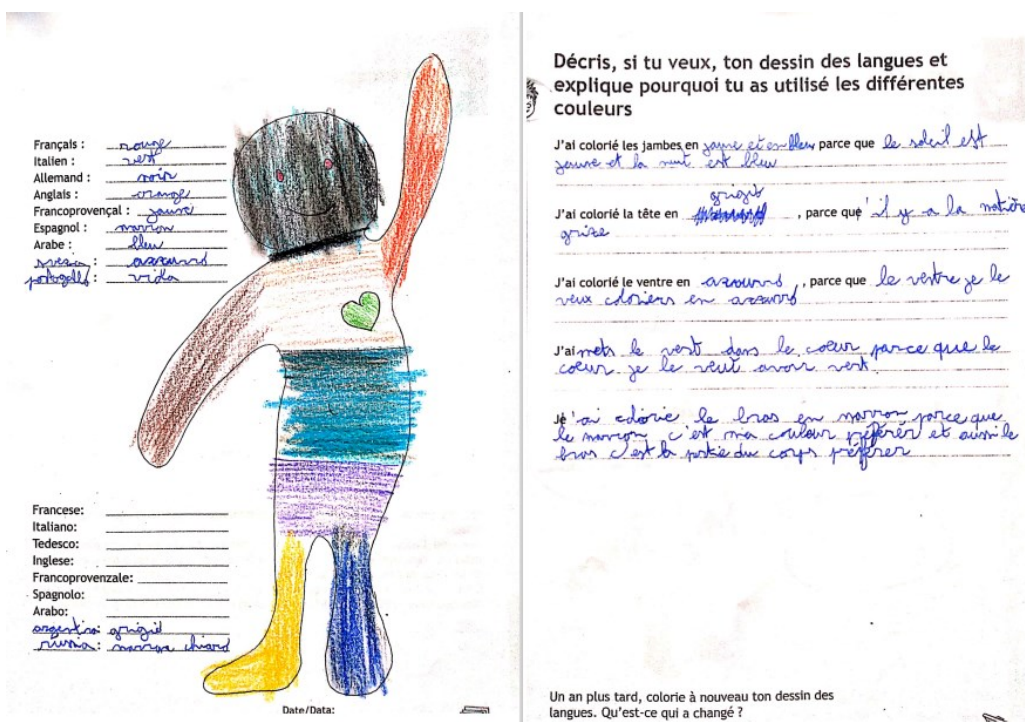 Français : rouge
Italien : vert
Allemand : noir
Anglais : orange
Francoprovençal : jaune
Espagnol : marron
Arabe : bleu
svezia : azzurro
portogallo : viola
Francese:
Italiano:
Tedesco:
Inglese:
Francoprovenzale:
Spagnolo:
Arabo:
argentina: grigio
russia: marron chiaro
Date/Data:
Décris, si tu veux, ton dessin des langues et
explique pourquoi tu as utilisé les différentes
couleurs
J'ai colorié les jambes en jaune et en bleu parce que le soleil est
jaune et la nuit est bleu
grigio
J'ai colorié la tête en , parce que il y a la matière
grize
J'ai colorié le ventre en azzurro , parce que le ventre je le
veux coloriers en azzurro
J'ai mets le vert dans le coeur parce que le
coeur je le veut avoir vert.
Je 'ai colorie le bras en marron parce que
le marron c'est ma couleur préférér et aussi le
bras c'est la partie du corps préférer
Un an plus tard, colorie à nouveau ton dessin des
langues. Qu'est-ce qui a changé ?